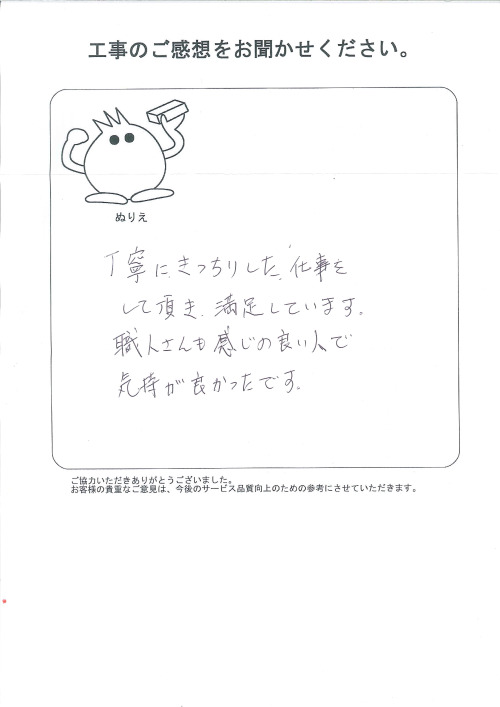 工事のご感想をお聞かせください。
ぬりえ
丁寧に、きっちりした、仕事を
して頂き、満足しています。
職人さんも感じの良い人で
気持が良かったです。
ご協力いただきありがとうございました。
お客様の貴重なご意見は、今後のサービス品質向上のための参考にさせていただきます。